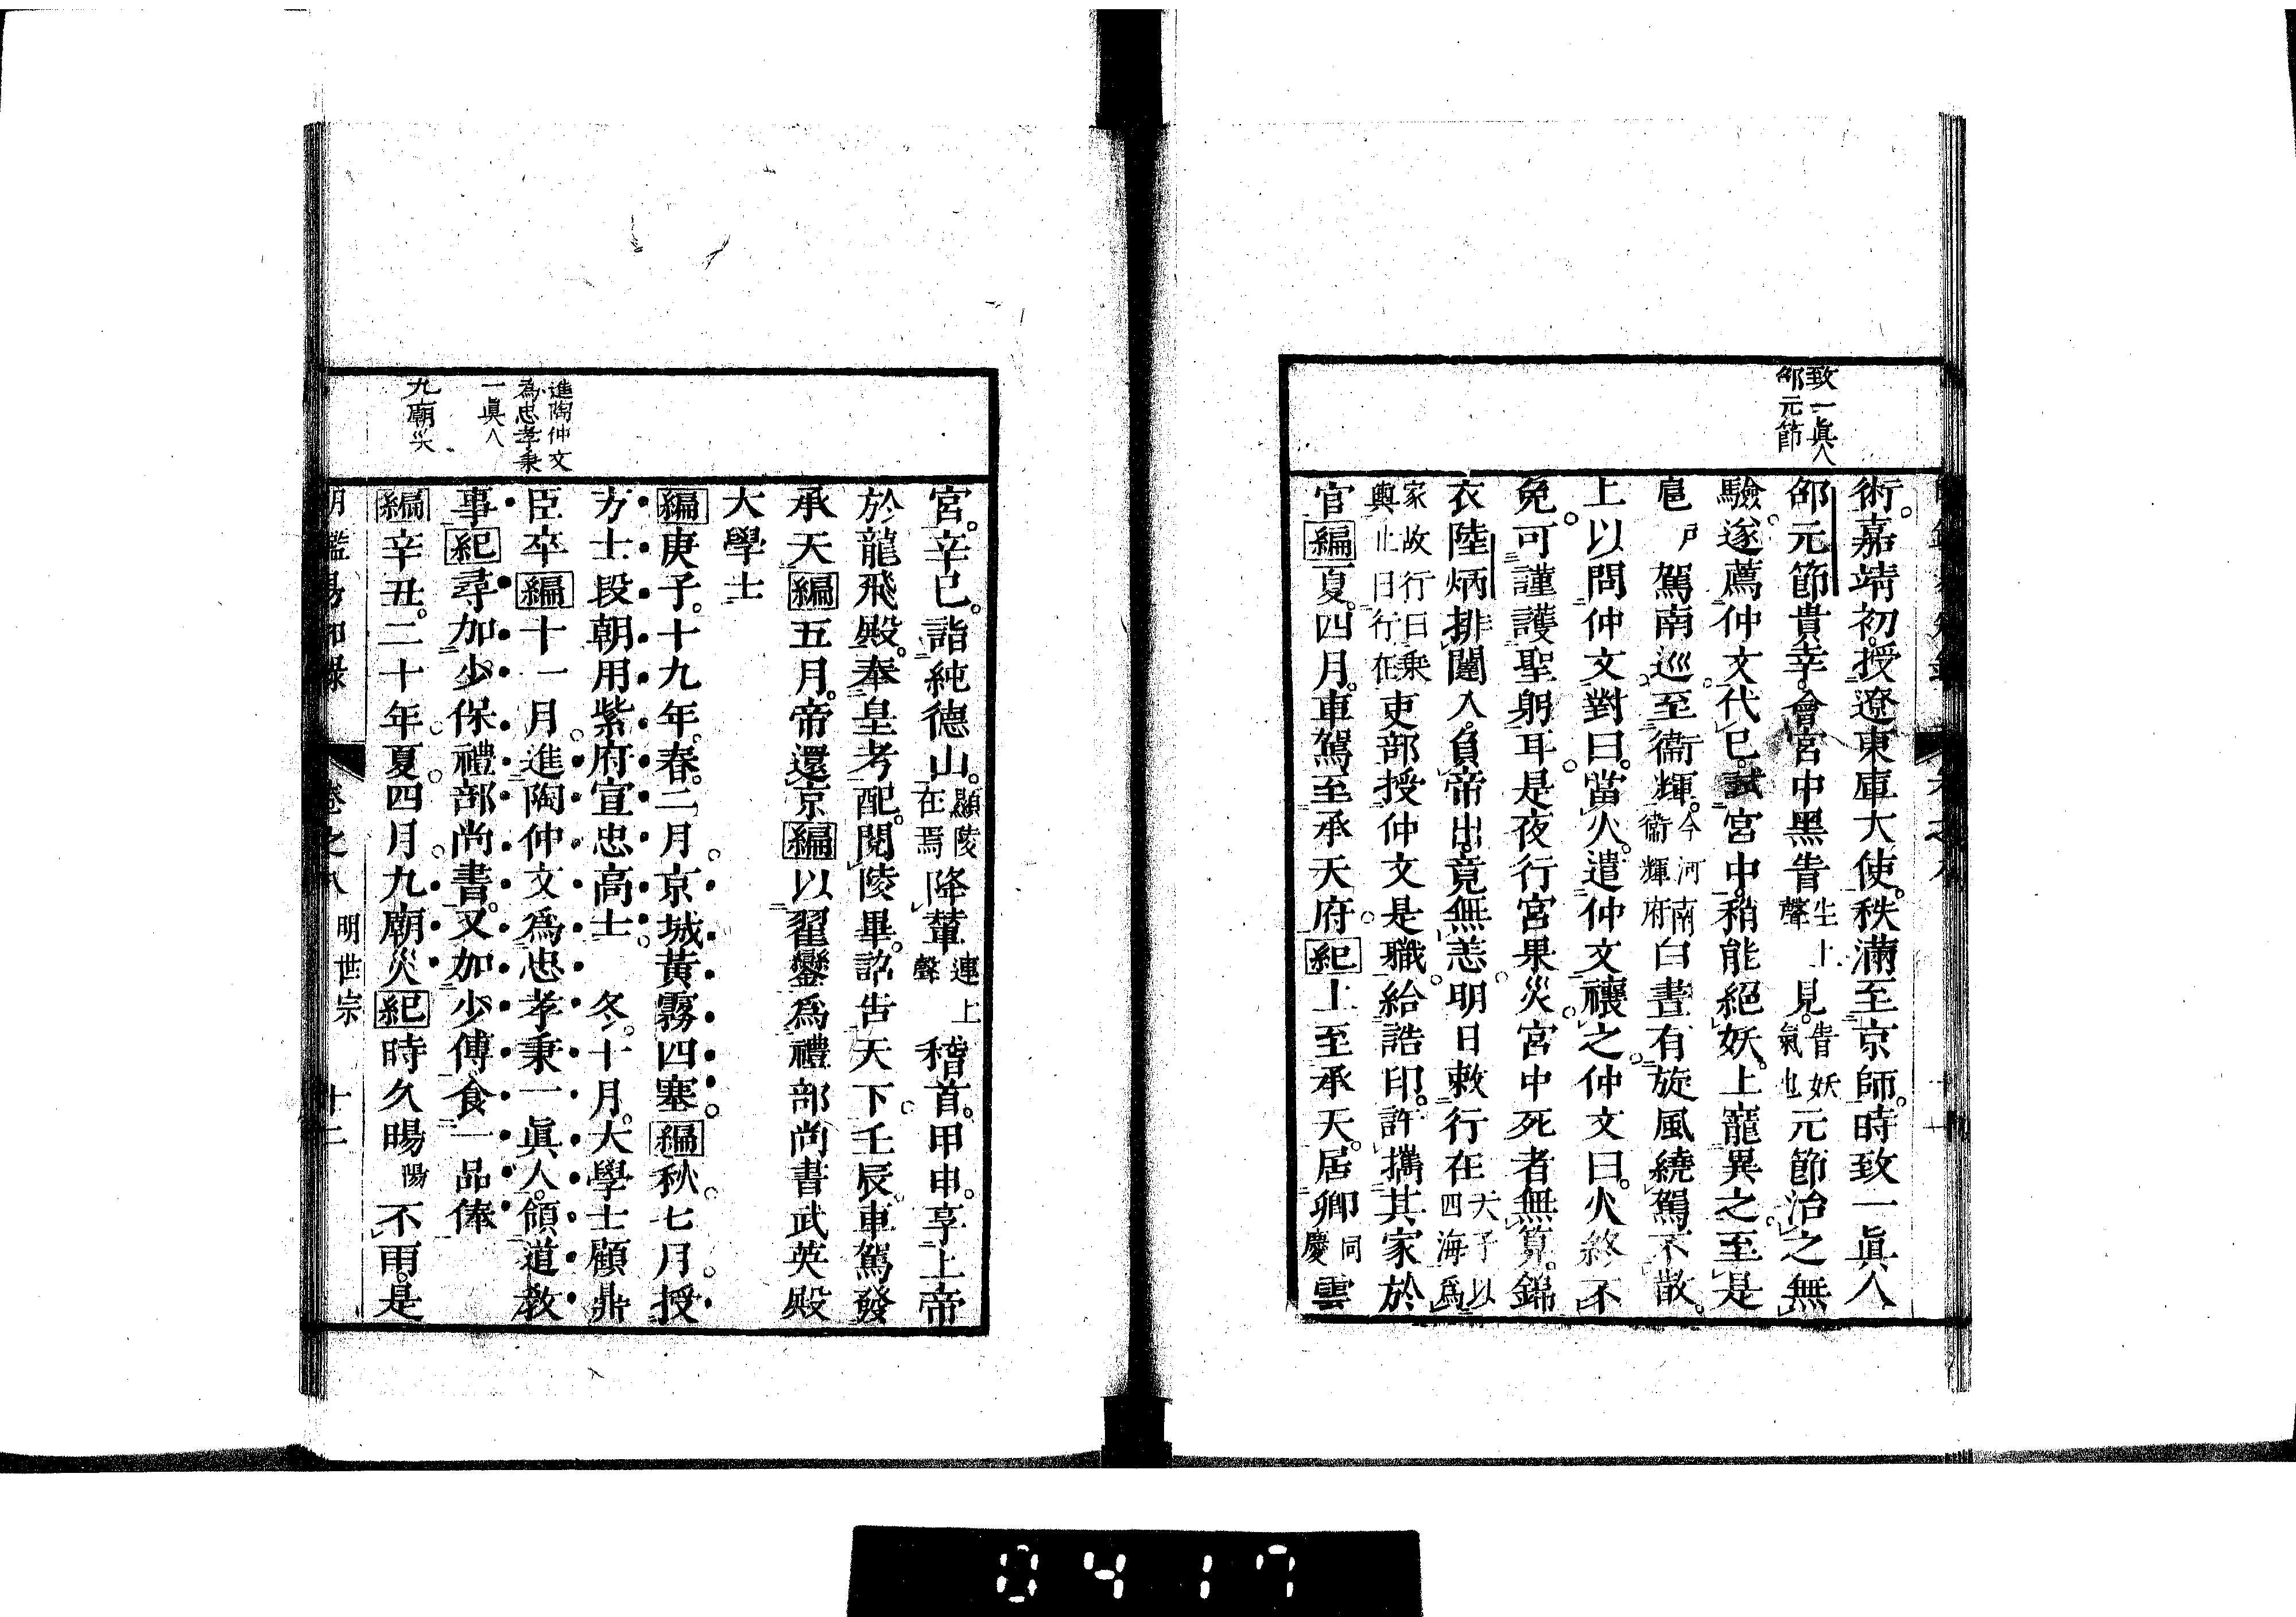 致一眞人
邵元節
術。嘉靖初。授遼東庫大使。秩滿至京師。時致一眞人
邵元節貴幸。會宮中黑眚生上聲見。眚妖氣也元節治之無
驗。遂薦仲文代已。試宮中。稍能絕妖。上寵異之。至是
扈戶駕南巡。至衞輝。今河南衞輝府白晝有旋風繞駕不散。
上以問仲文對曰。當火。遣仲文禳之。仲文曰。火終不
免。可謹護聖躬耳。是夜行宮果災。宮中死者無算。錦
衣陸炳排闥入。負帝出。竟無恙。明日敕行在天子以四海爲
家故行曰乘輿止曰行在吏部授仲文是職。給誥印。許攜其家於
官編夏。四月。車駕至承天府。紀上至承天。居卿同慶雲
宮。辛巳。詣純德山。顯陵在焉降輦連上聲稽首。甲申。享上帝
於龍飛殿。奉皇考配。閱陵畢。詔告天下。壬辰。車駕發
承天編五月。帝還京編以翟鑾爲禮部尚書武英殿
大學士
編庚子。十九年。春。二月。京城黃霧四塞。編秋。七月。授
方士段朝用紫府宣忠高士。冬。十月。大學士顧鼎
臣卒編十一月。進陶仲文爲忠孝秉一眞人。領道教
事紀尋加少保禮部尚書。又加少傅食一品俸
編辛丑。二十年。夏。四月。九廟災紀時久暘陽不雨。是
進陶仲文
爲忠孝秉
一眞人
九廟災
明鑑易知錄 卷之八 明世宗 十二
0417